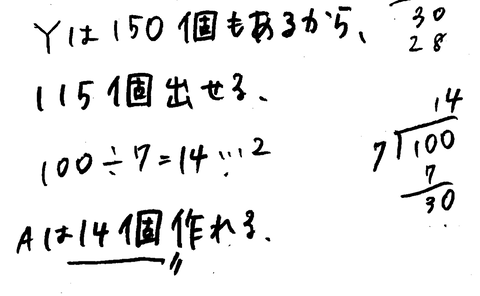 Yは150個もあるから、
115個出せる、
100÷7=14…2
Aは14個作れる、
30
28
14
7)100
7
30